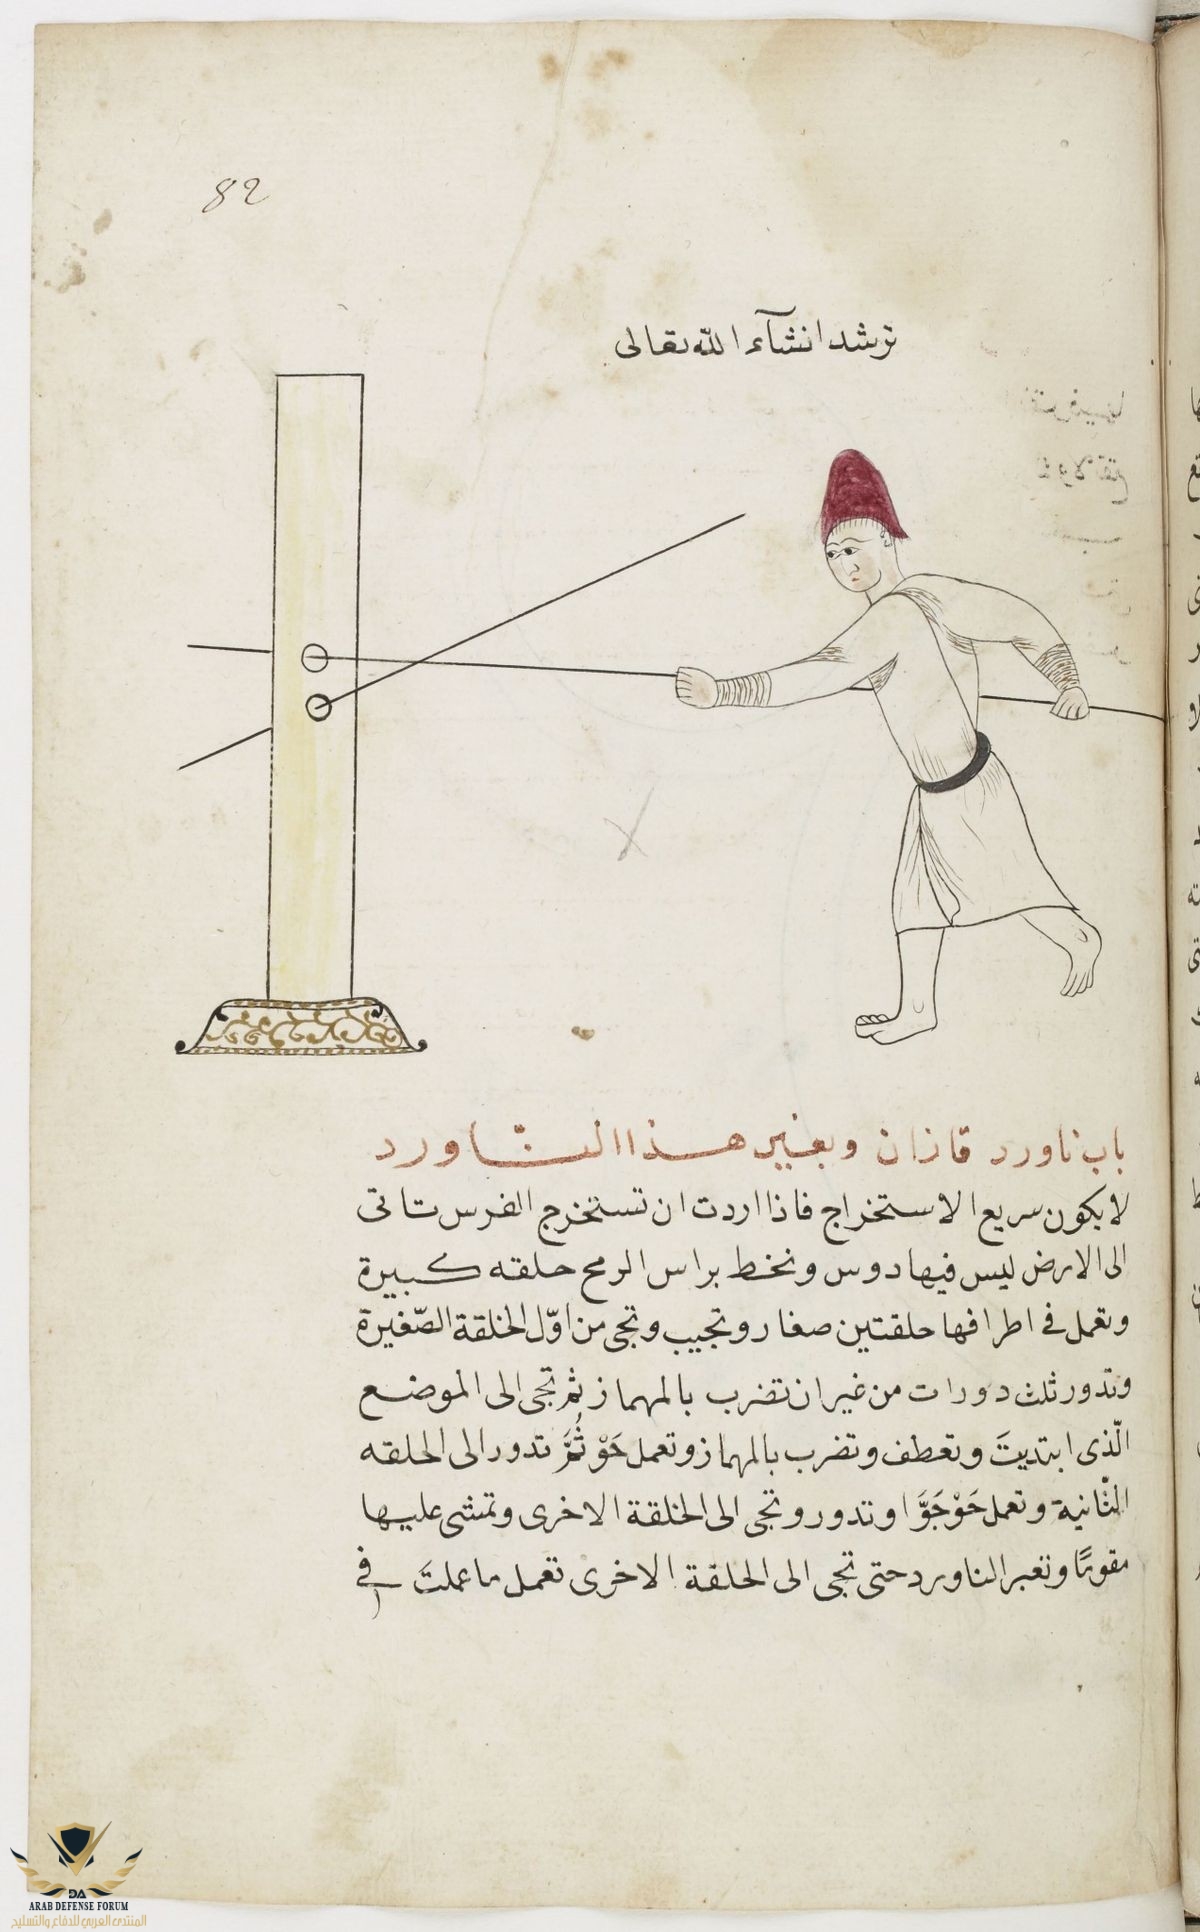 82
ترشد انشآء الله تعالى
باب ناورد قازان وبغير هذا النّاورد
لا يكون سريع الاستخراج فاذا اردت ان تستخرج الفرس تاتى
الى الارض ليس فيها دوس وتخط براس الرمح حلقه كبيرة
وتعمل فى اطرافها حلقتين صغار وتجيب وتجى من اوّل الحلقة الصّغيرة
وتدور ثلث دورات من غير ان تضرب بالمهماز ثم تجى الى الموضع
الّذى ابتديتَ وتعطف وتضرب بالمهماز وتعمل حَوْ ثُمَّ تدور الى الحلقه
الثّانية وتعمل حَوْ جَوَّا وتدور وتجى الى الحلقة الاخرى وتمشى عليها
مقورًا وتعبر الناورد حتى تجى الى الحلقة الاخرى تعمل ما عملتَ فى
ARAB DEFENSE FORUM
المنتدى العربي للدفاع والتسليح